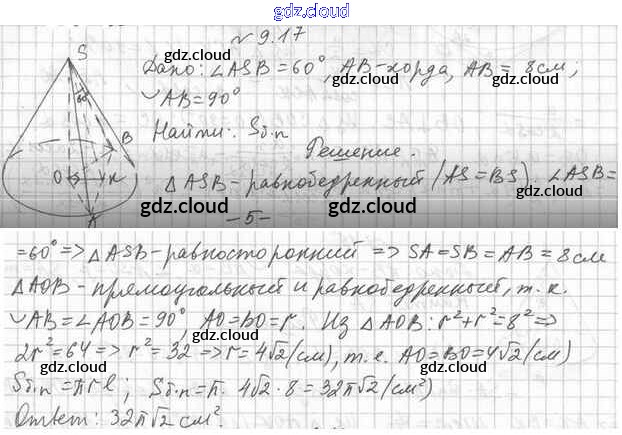 gdz.cloud
№ 9.17
Дано: ∠ASB=60°, AB-хорда, AB=8см;
◡AB=90°
Найти: Sб.п
Решение.
△ASB-равнобедренный (AS=BS). ∠ASB=
-5-
S
60°
B
O
K
A
=60° => △ASB-равносторонний => SA=SB=AB=8см
△AOB-прямоугольный и равнобедренный, т.к.
◡AB=∠AOB=90°, AO=BO=r. Из △AOB: r²+r²=8² =>
2r²=64 => r²=32 => r=4√2 (см), т.е. AO=BO=4√2 (см)
Sб.п=πrl; Sб.п=π·4√2·8=32π√2 (см²)
Ответ: 32π√2 см².
gdz.cloud
gdz.cloud
gdz.cloud
gdz.cloud
gdz.cloud
gdz.cloud
gdz.cloud
gdz.cloud
gdz.cloud
gdz.cloud
gdz.cloud
gdz.cloud